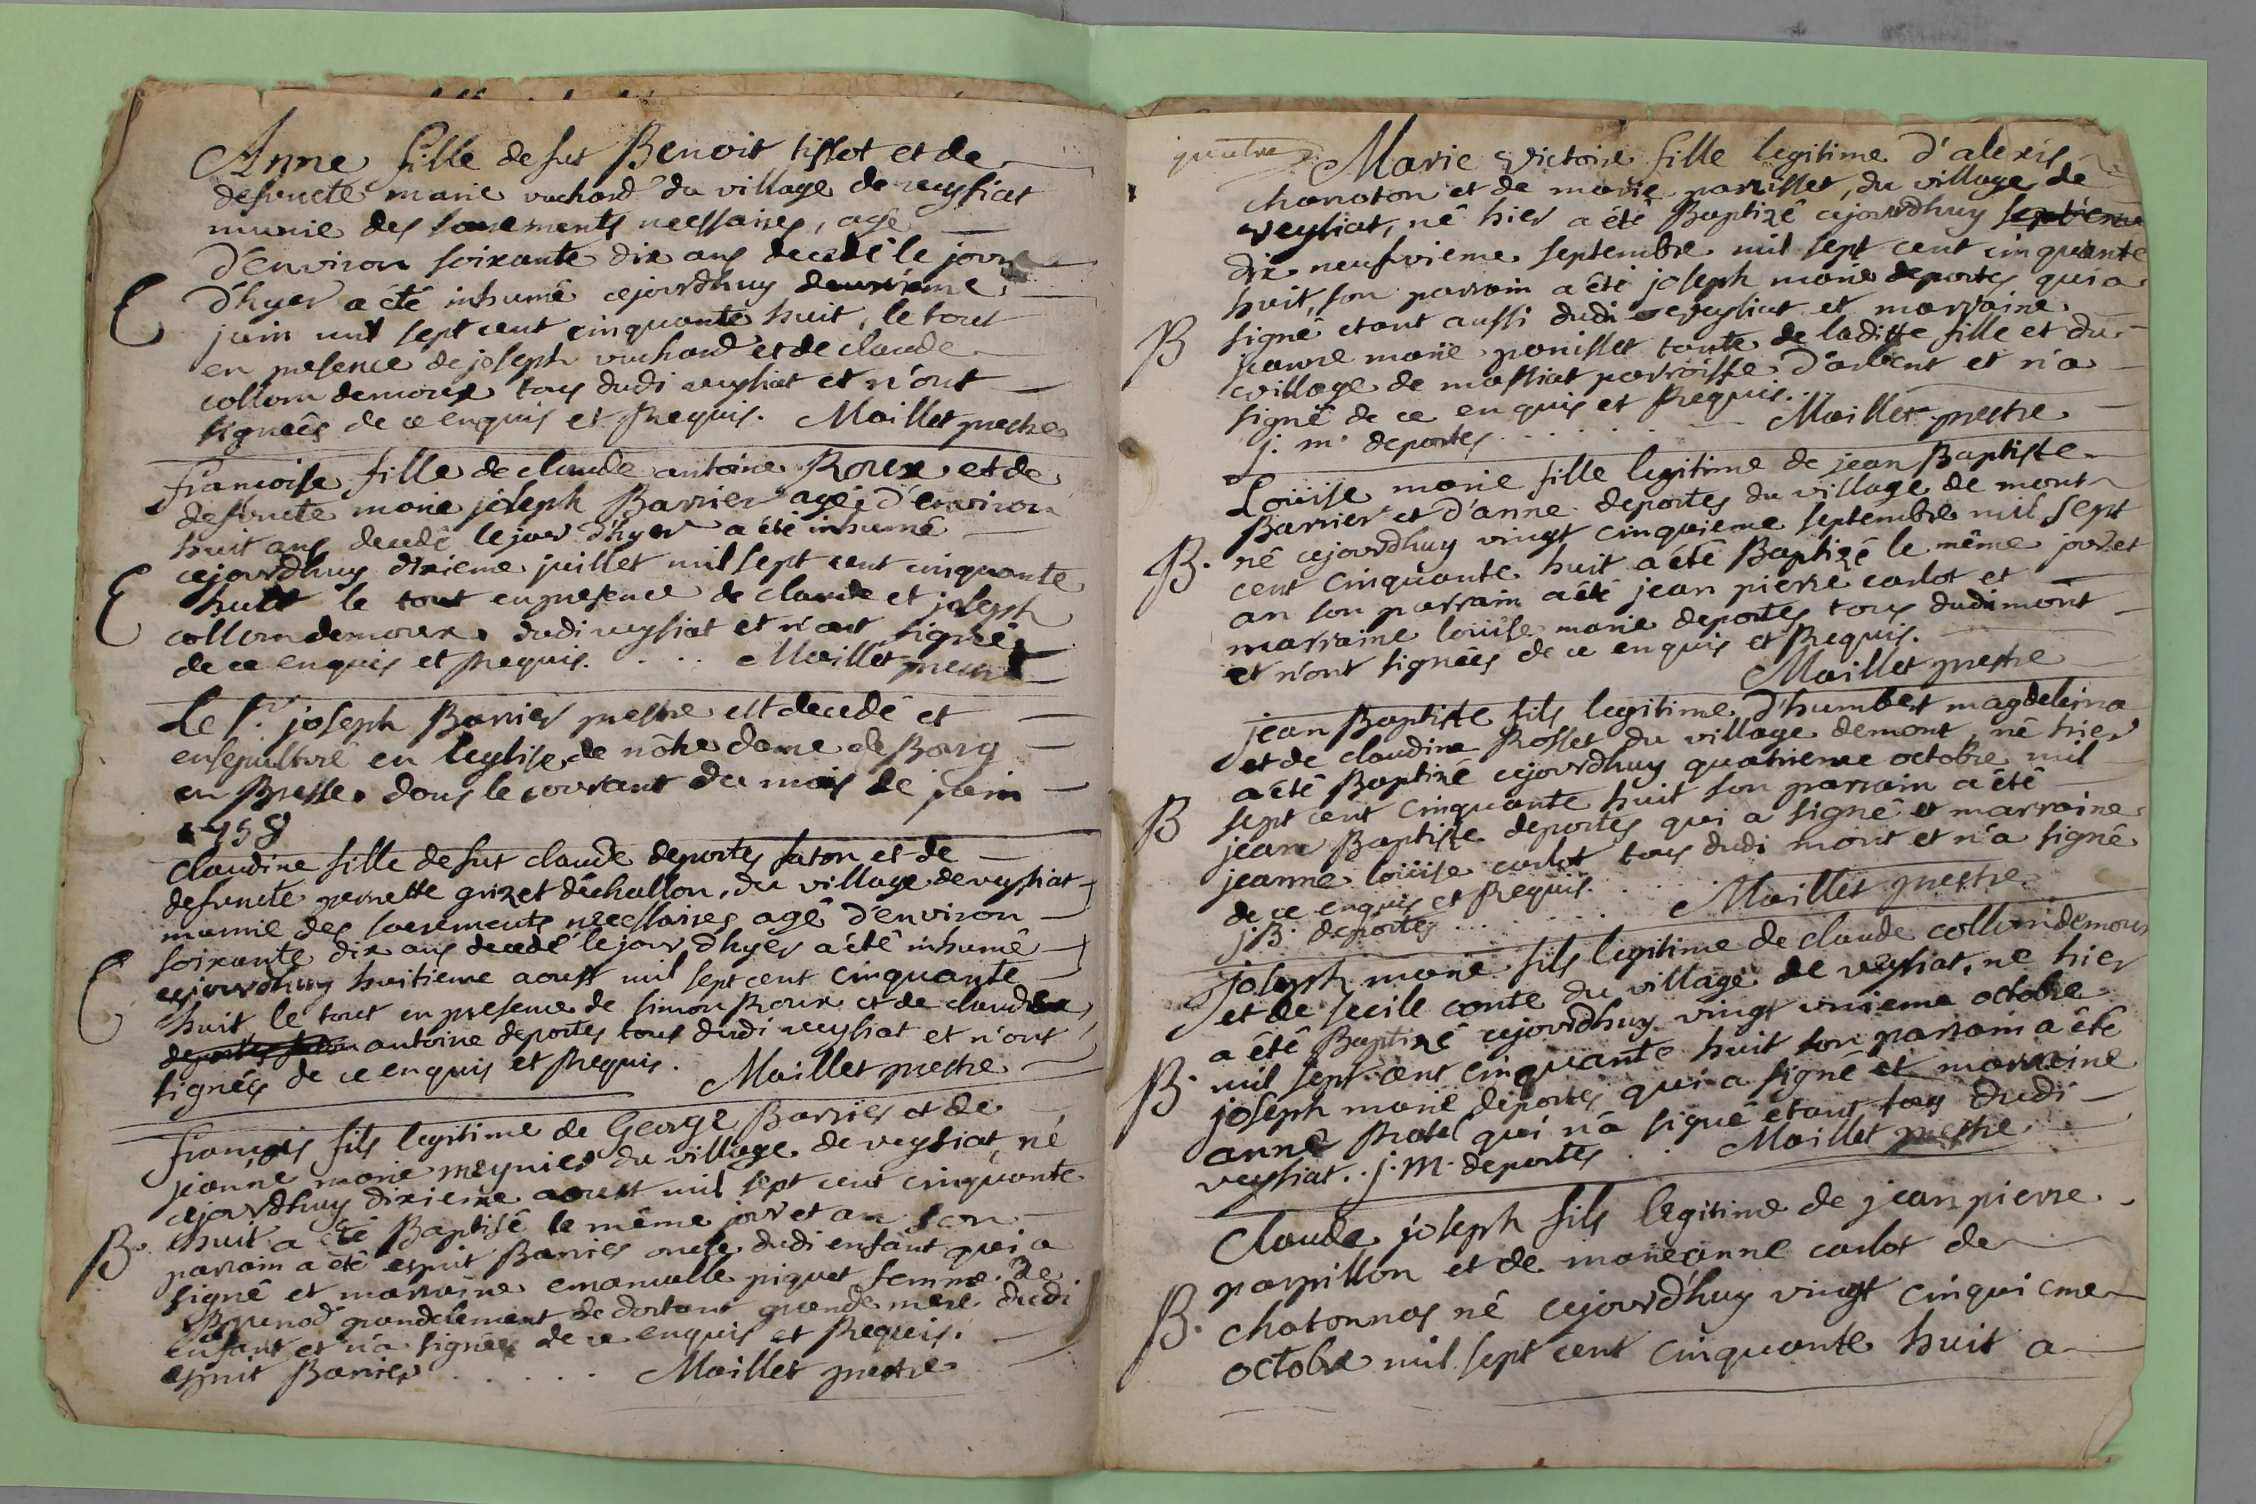 Anne fille de fut Benoit tissot et de
defuncte marie vuchard du village de veysiat
munie des sacrements necessaires, agé
d'environ soixante dix ans decedé le jour
d'hyer a été inhumé cejourdhuy deuxième
E
juin mil sept cent cinquante huit, le tout
en presence de joseph vuchard et de claude
collomdemoux tous dudi veysiat et n'ont
signées de ce enquis et Requis. Maillet prestre
francoise fille de claude antoine Roux et de
defuncte marie joseph Barrier agé d'environ
huit ans decedé le jour d'hyer a été inhumé
cejourdhuy dixieme juillet mil sept cent cinquante
E
huit le tout en presence de claude et joseph
collomdemoux dudi veysiat et n'ont signé
de ce enquis et Requis. . . . Maillet prestre
Le Sr joseph Barrier prestre est decedé et
ensepulturé en leglise de nôtre dame de Bourg
en Bresse dans le courant du mois de juin
1758
Claudine fille de fut claude deportes faton et de
defuncte pernette grizet dechallon, du village de veysiat
munie des sacrements necessaires agé d'environ
soixante dix ans decedé le jour d'hyer a été inhumé
E
cejourdhuy huitieme aoust mil sept cent cinquante
huit le tout en presence de simon Roux et de claude
deportes faton antoine deportes tous dudi veysiat et n'ont
signées de ce enquis et Requis. Maillet prestre
françois fils legitime de George Barrier et de
jeanne marie meynier du village de veysiat, né
cejourdhuy dixieme aoust mil sept cent cinquante
B.
huit a été Baptisé le même jour et an son
parrain a été esprit Barrier oncle dudi enfant qui a
signé et marraine emanuelle piquet femme de
Brunod grandclement de dortant grande mere dudi
enfant et n'a signée de ce enquis et Requis.
esprit Barrier . . . . . Maillet prestre
quatre
Marie Victoire fille legitime d'alexis
chanoton et de marie parrisset, du village de
veysiat, né hier a été Baptizé cejourdhuy septieme
dix neufvieme septembre mil sept cent cinquante
huit, son parrain a été joseph marie deportes qui a
B
signé etant aussi dudi veysiat et marraine
jeanne marie panisset tante de laditte fille et du
village de massiat parroisse d'arbent et n'a
signé de ce enquis et Requis.
j. m. deportes . . . . . Maillet prestre
Loüise marie fille legitime de jean Baptiste
Barrier et d'anne deportes du village de mont
B.
né cejourdhuy vingt cinquieme septembre mil sept
cent cinquante huit a été Baptizé le même jour et
an son parrain a été jean pierre carlot et
marraine loüise marie deportes tous dudi mont
et n'ont signées de ce enquis et Requis.
Maillet prestre
jean Baptiste fils legitime d'humbert magdeleina
et de claudine Rosset du village demont, né hier
a été Baptizé cejourdhuy quatrieme octobre mil
B
sept cent cinquante huit son parrain a été
jean Baptiste deportes qui a signé et marraine
jeanne loüise carlot tous dudi mont et n'a signé
de ce enquis et Requis.
j. B. deportes . . . . . Maillet prestre
joseph marie fils legitime de claude collomdemoux
et de secile conte du village de veysiat, né hier
a été Baptizé cejourdhuy vingt unieme octobre
B.
mil sept cent cinquante huit son parrain a été
joseph marie deportes qui a signé et marraine
anne Rosset qui n'a signé etant tous dudi
veysiat. j. m. deportes . . Maillet prestre
Claude joseph fils legitime de jean pierre
parpillon et de marieanne carlot de
B.
chatonnas né cejourd'huy vingt cinquieme
octobre mil sept cent cinquante huit a